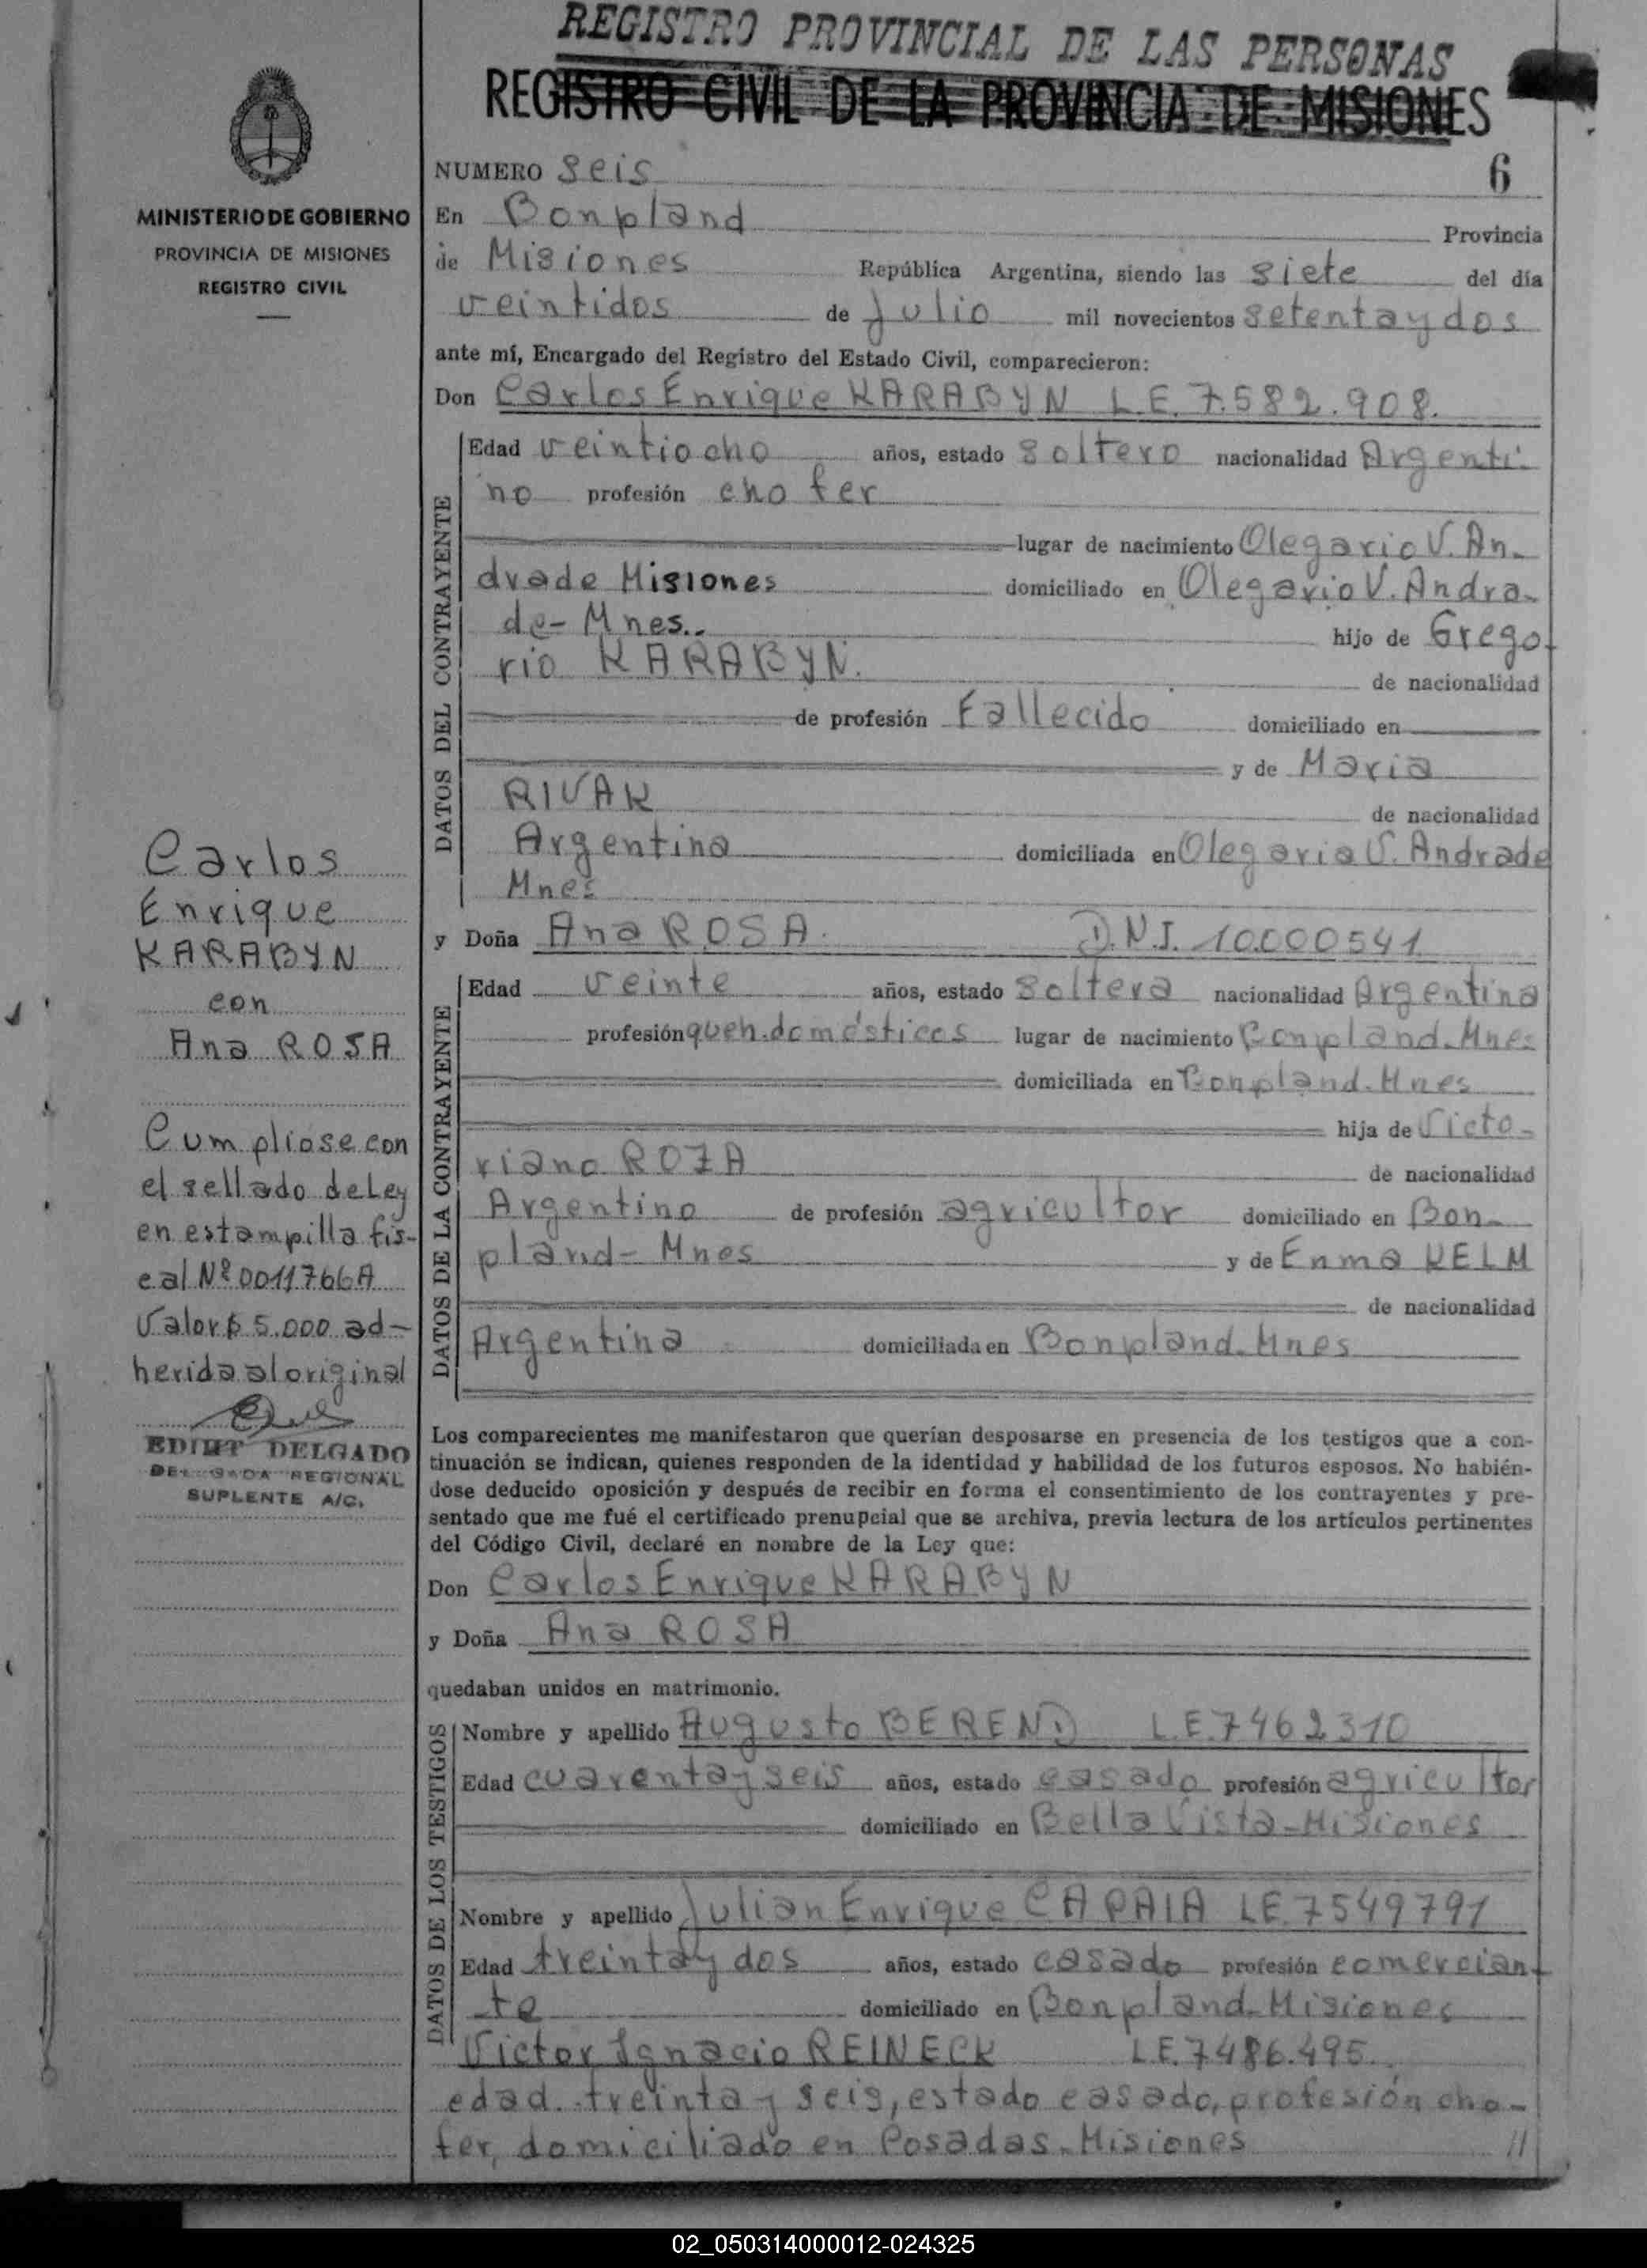 REGISTRO PROVINCIAL DE LAS PERSONAS
REGISTRO CIVIL DE LA PROVINCIA DE MISIONES
MINISTERIO DE GOBIERNO
PROVINCIA DE MISIONES
REGISTRO CIVIL
NUMERO seis 6
En Bonpland Provincia
de Misiones República Argentina, siendo las siete del día
veintidos de Julio mil novecientos setenta y dos
ante mí, Encargado del Registro del Estado Civil, comparecieron:
Don Carlos Enrique KARABYN L.E. 7.582.908.
DATOS DEL CONTRAYENTE
Edad veintiocho años, estado soltero nacionalidad Argenti-
no profesión chofer
lugar de nacimiento Olegario V. An-
drade Misiones domiciliado en Olegario V. Andra-
de- Mnes.. hijo de Grego-
rio KARABYN. de nacionalidad
de profesión Fallecido domiciliado en
y de Maria
RIVAK de nacionalidad
Argentina domiciliada en Olegario V. Andrade
Mnes
y Doña Ana ROSA. D.N.I. 10.000541
DATOS DE LA CONTRAYENTE
Edad veinte años, estado soltera nacionalidad Argentina
profesión queh. domésticos lugar de nacimiento Bonpland. Mnes
domiciliada en Bonpland. Mnes
hija de Victo-
riano ROZA de nacionalidad
Argentino de profesión agricultor domiciliado en Bon-
pland- Mnes y de Enma KELM
de nacionalidad
Argentina domiciliada en Bonpland. Mnes
Carlos
Enrique
KARABYN
con
Ana ROSA
Cumpliose con
el sellado de Ley
en estampilla fis-
cal Nº 0011766A
Valor $ 5.000 ad-
herida al original
EDIHT DELGADO
DELEGADA REGIONAL
SUPLENTE A/C.
Los comparecientes me manifestaron que querían desposarse en presencia de los testigos que a con-
tinuación se indican, quienes responden de la identidad y habilidad de los futuros esposos. No habién-
dose deducido oposición y después de recibir en forma el consentimiento de los contrayentes y pre-
sentado que me fué el certificado prenupcial que se archiva, previa lectura de los artículos pertinentes
del Código Civil, declaré en nombre de la Ley que:
Don Carlos Enrique KARABYN
y Doña Ana ROSA
quedaban unidos en matrimonio.
DATOS DE LOS TESTIGOS
Nombre y apellido Augusto BEREND L.E. 7462310
Edad cuarenta y seis años, estado casado profesión agricultor
domiciliado en Bella Vista-Misiones
Nombre y apellido Julian Enrique CAPAIA LE. 7549791
Edad treinta y dos años, estado casado profesión comercian-
te domiciliado en Bonpland-Misiones
Victor Ignacio REINECK L.E. 7486.495.
edad treinta y seis, estado casado, profesión cho-
fer, domiciliado en Posadas-Misiones //
02_050314000012-024325